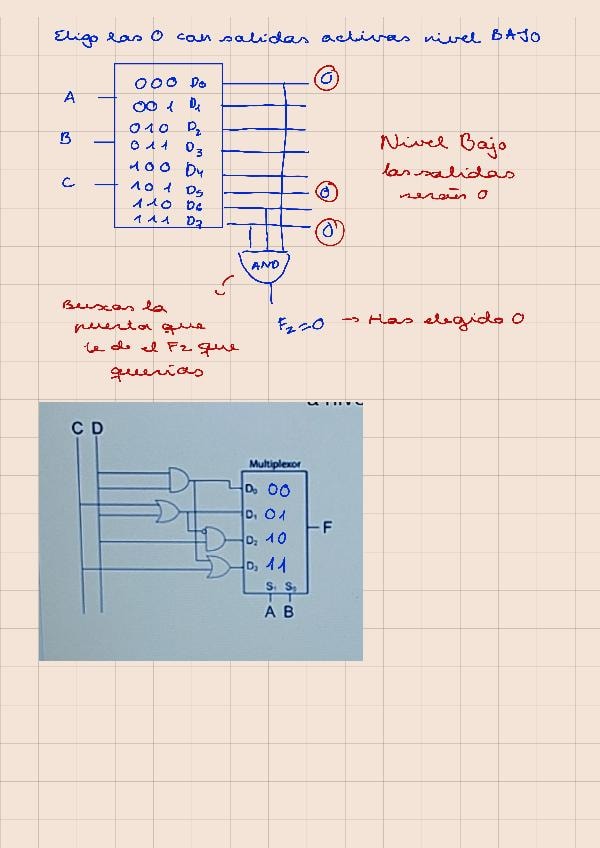 Eligo las 0 con salidas activas nivel BAJO
000 D0
A
001 D1
010 D2
B
011 D3
100 D4
C
101 D5
110 D6
111 D7
0
0
0
Nivel Bajo
las salidas
serán 0
AND
Buscas la
puerta que
te de el F2 que
querías
F2=0 → Has elegido 0
C D
Multiplexor
D0 00
D1 01
D2 10
D3 11
F
S1 S0
A B